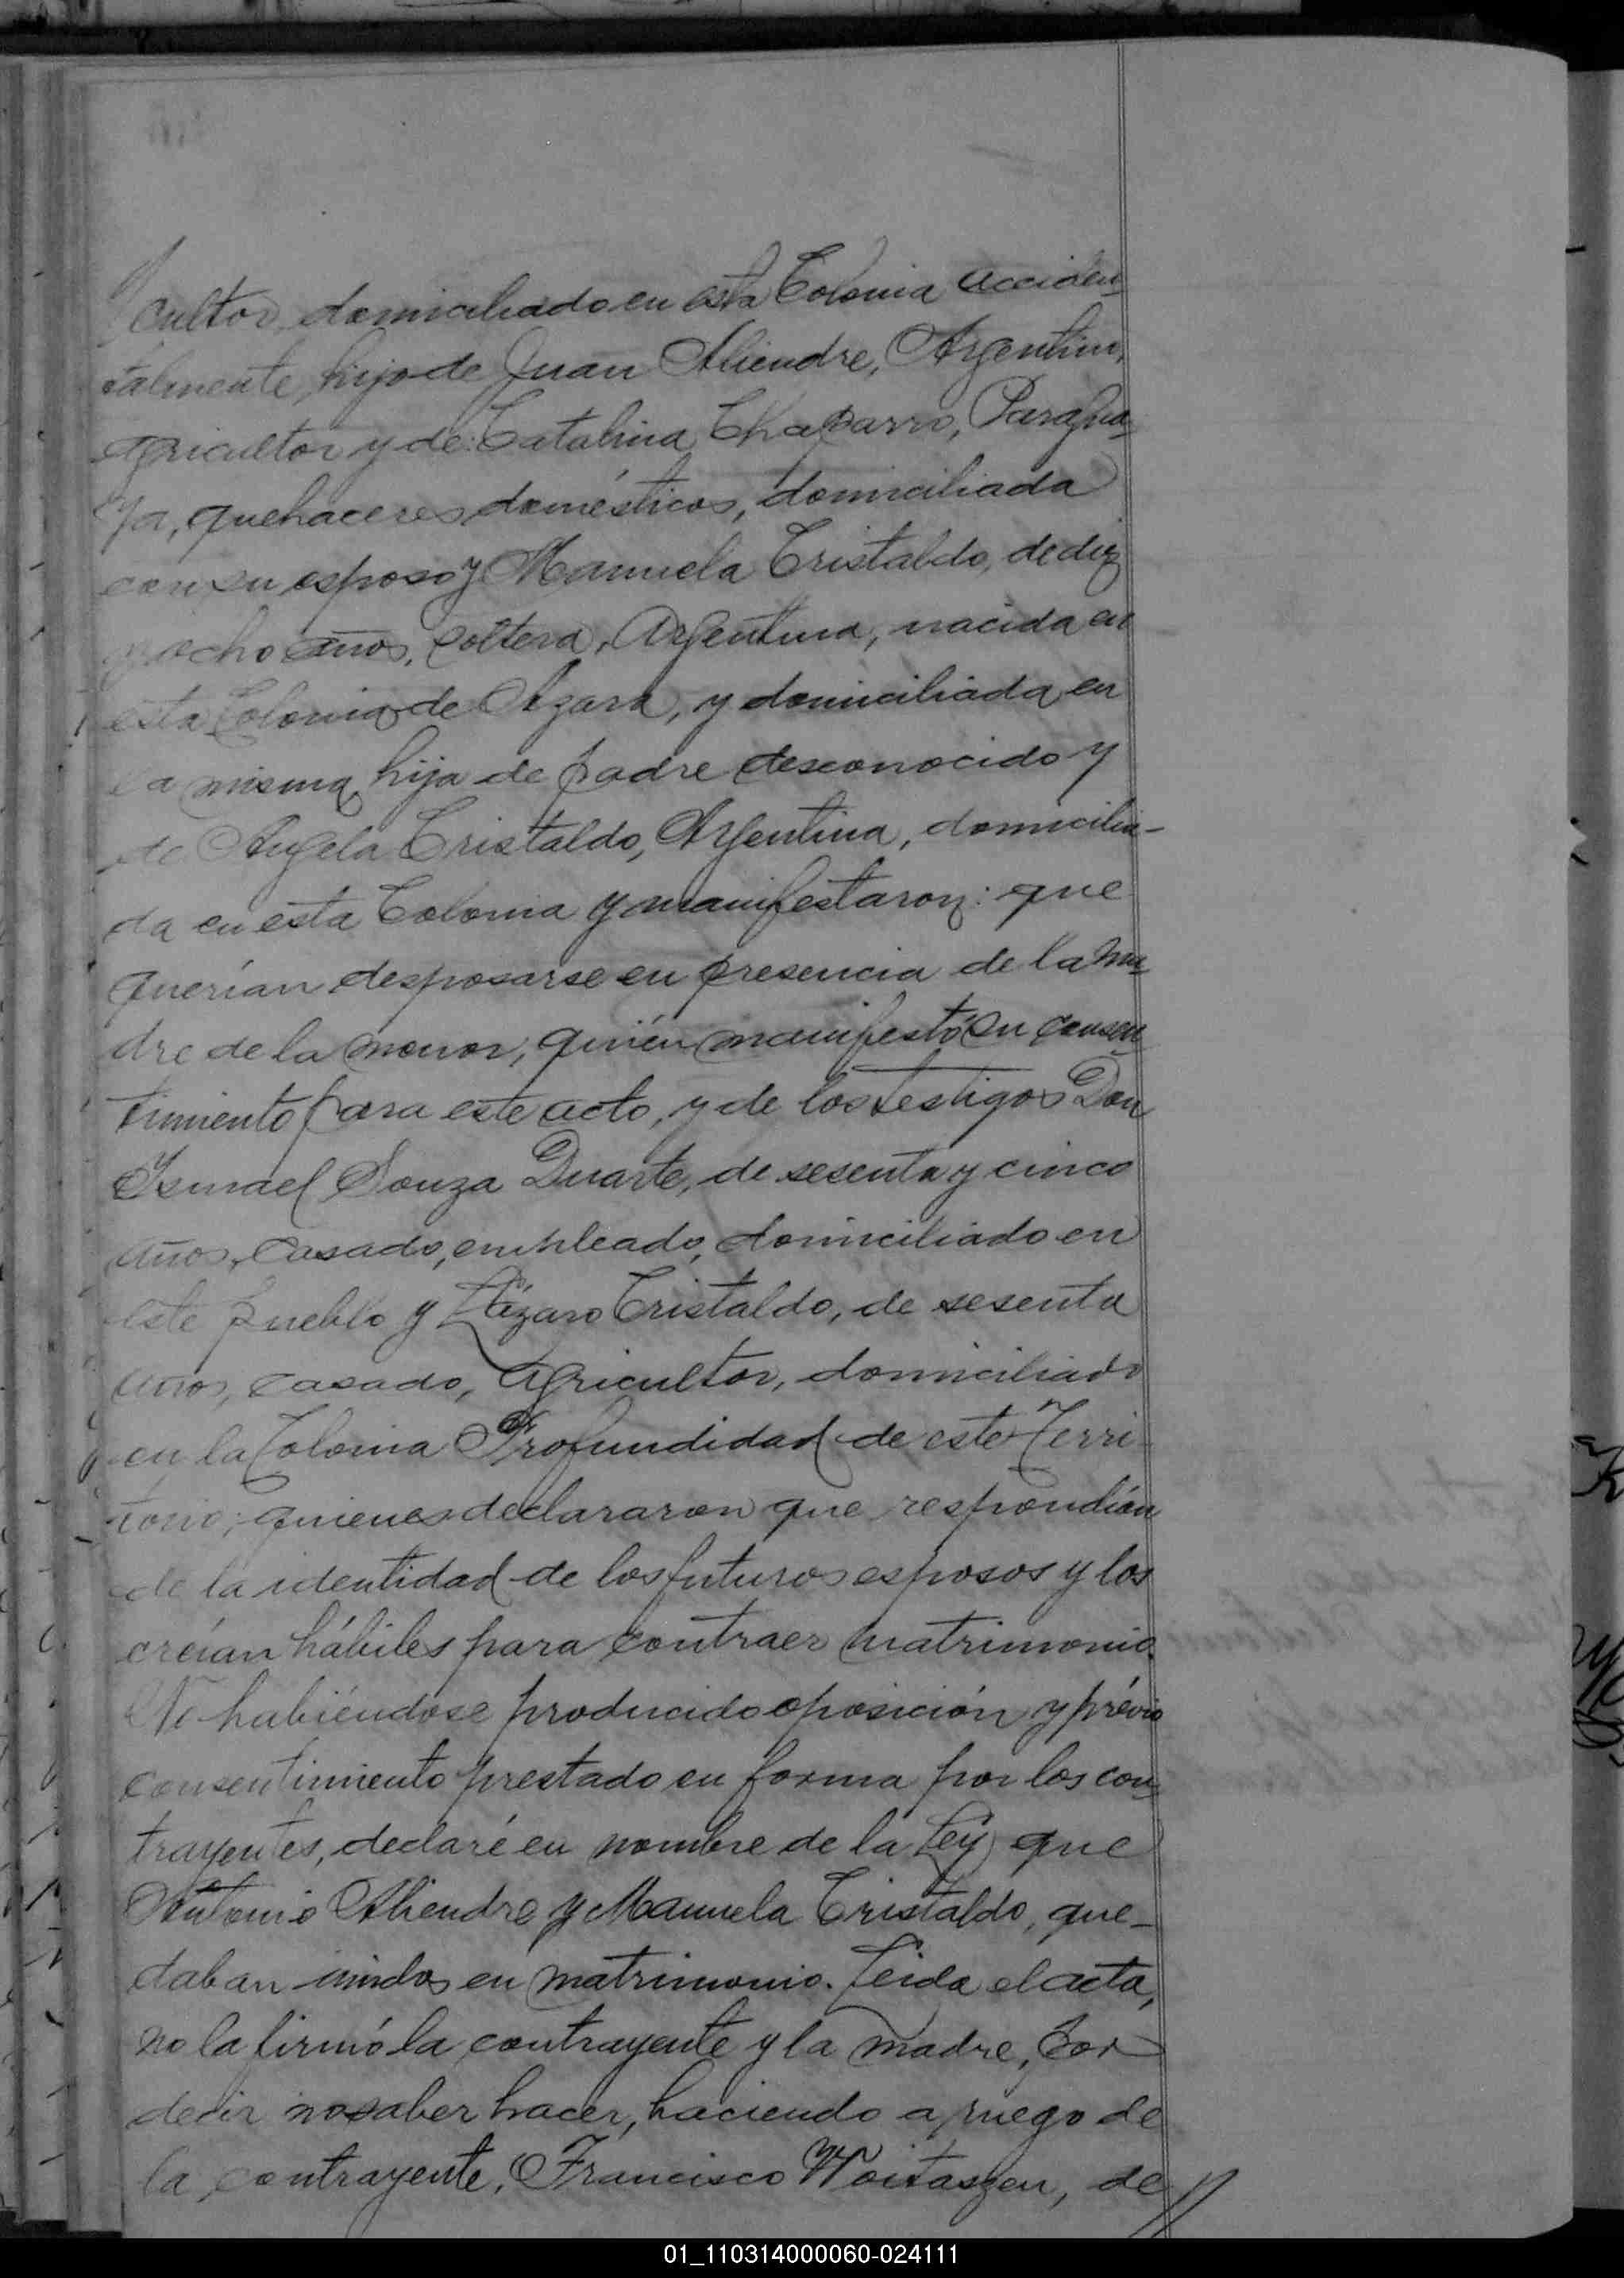 cultor, domiciliado en esta Colonia acciden
talmente, hijo de Juan Aliendre, Argentino,
agricultor y de Catalina Chaparro, Paragua
ya, quehaceres domésticos, domiciliada
con su esposo y Manuela Cristaldo, de diez
y ocho años, soltera, Argentina, nacida en
esta Colonia de Azara, y domiciliada en
la misma, hija de padre desconocido y
de Angela Cristaldo, Argentina, domicilia-
da en esta Colonia y manifestaron: que
querían desposarse en presencia de la ma
dre de la menor, quién manifestó su consen
timiento para este acto, y de los testigos Don
Ismael Souza Duarte, de sesenta y cinco
años, casado, empleado, domiciliado en
este pueblo y Lázaro Cristaldo, de sesenta
años, casado, agricultor, domiciliado
en la Colonia Profundidad de este Terri-
torio; quienes declararon que respondían
de la identidad de los futuros esposos y los
creían hábiles para contraer matrimonio.
No habiéndose producido oposición y prévio
consentimiento prestado en forma por los con
trayentes, declaré en nombre de la Ley que
Antonio Aliendre y Manuela Cristaldo, que-
daban unidos en matrimonio. Leida el acta,
no la firmó la contrayente y la madre, por
decir no saber hacer, haciendo a ruego de
la contrayente, Francisco Woitaszen, de //
01_110314000060-024111